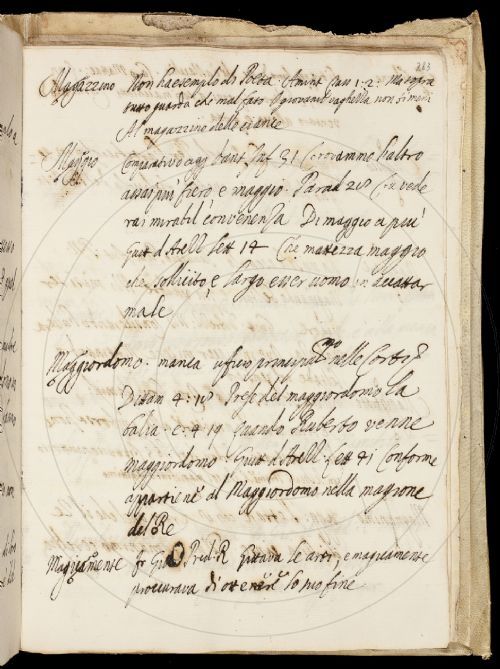 283
Magazzino Non ha esemplo di Poeta Amint Can 1. 2. Ma sopra
tutto guarda che mal fato o giovenil vaghezza non ti meni
Al magazzino delle ciance
Maggio Comparativo agg. Dant. Inf 31 Trovammo l'altro
assai piu fiero, e maggio Parad 28 Tu vede
rai mirabil convenenza Di maggio a piu
Guitt d'Arezz Lett 14 Che mattezza maggio
che sollicito, e largo esser uomo in accattar
male
Maggiordomo. manca uffizio principal.mo nelle Corti
Dittam 4: Prese del maggiordomo la
balia. e. 4 19 Quando Ruberto venne
maggiordomo. Guitt d'Arezz. Lett Conforme
appartiene al Maggiordomo nella magione
del Re
Fr Pred. R Gittava le arti, e
procurava di ottenere lo suo fine